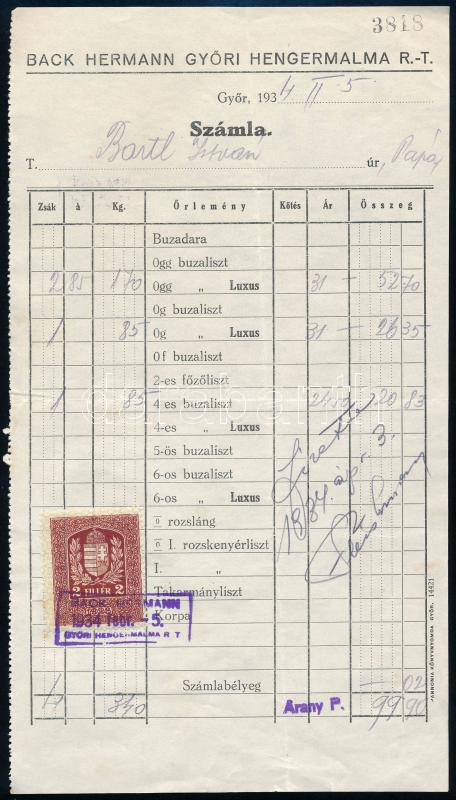 3818
BACK HERMANN GYŐRI HENGERMALMA R.-T.
Győr, 1934 II 5.
Számla.
T. Bartl István úr, Pápa
Zsák à Kg. Őrlemény Kötés Ár Összeg
Buzadara
0gg buzaliszt
2 85 170 0gg „ Luxus 31 — 52 70
0g buzaliszt
1 85 0g „ Luxus 31 — 26 35
0f buzaliszt
2-es főzőliszt
1 85 4-es buzaliszt 24 50 20 83
4-es „ Luxus
5-ös buzaliszt
6-os buzaliszt
6-os „ Luxus
0 rozsláng
0 I. rozskenyérliszt
I. „
Takarmányliszt
Korpa
Fizetve
1934. ápr. 3.
2 FILLÉR 2
BACK HERMANN
1934 febr. - 5.
GYŐRI HENGERMALMA R T
Számlabélyeg — 02
4 340 Arany P. 99 90
PANNONIA KÖNYVNYOMDA GYŐR. 14421
darabanth